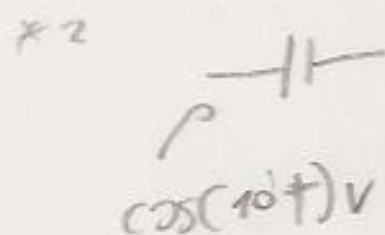 *2
cos(10t)V